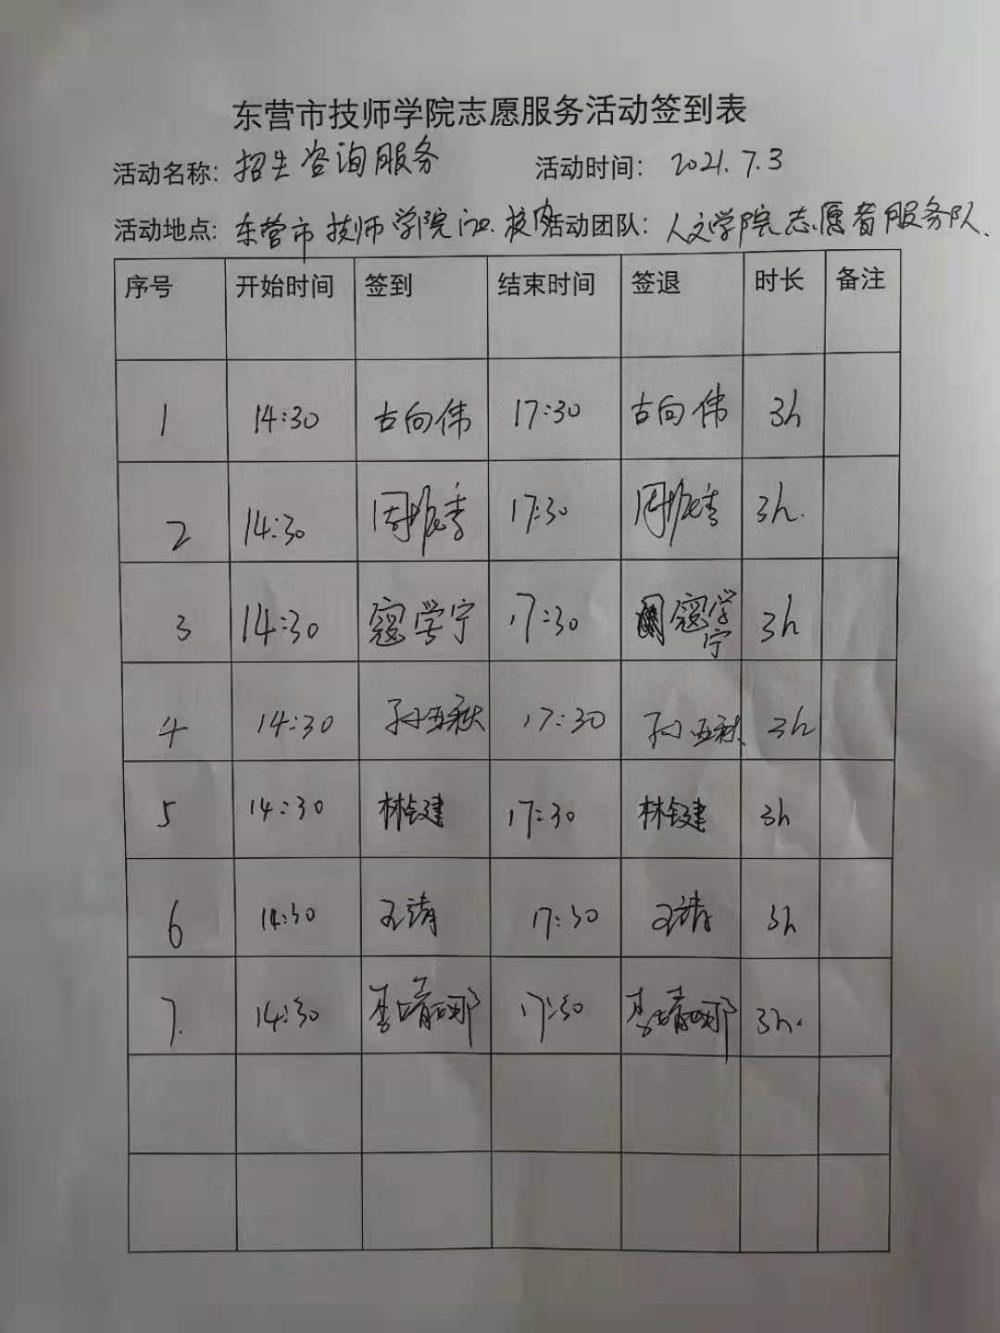 东营市技师学院志愿服务活动签到表
活动名称：招生咨询服务 活动时间：2021.7.3
活动地点：东营市技师学院门口.校内 活动团队：人文学院志愿者服务队.
序号 开始时间 签到 结束时间 签退 时长 备注
1 14:30 古向伟 17:30 古向伟 3h
2 14:30 17:30 3h.
3 14:30 寇学宁 17:30 寇学宁 3h
4 14:30 孙五秋 17:30 孙五秋 3h
5 14:30 林钗建 17:30 林钗建 3h
6 14:30 王靖 17:30 王靖 3h
7. 14:30 李晴哪 17:30 李晴哪 3h.